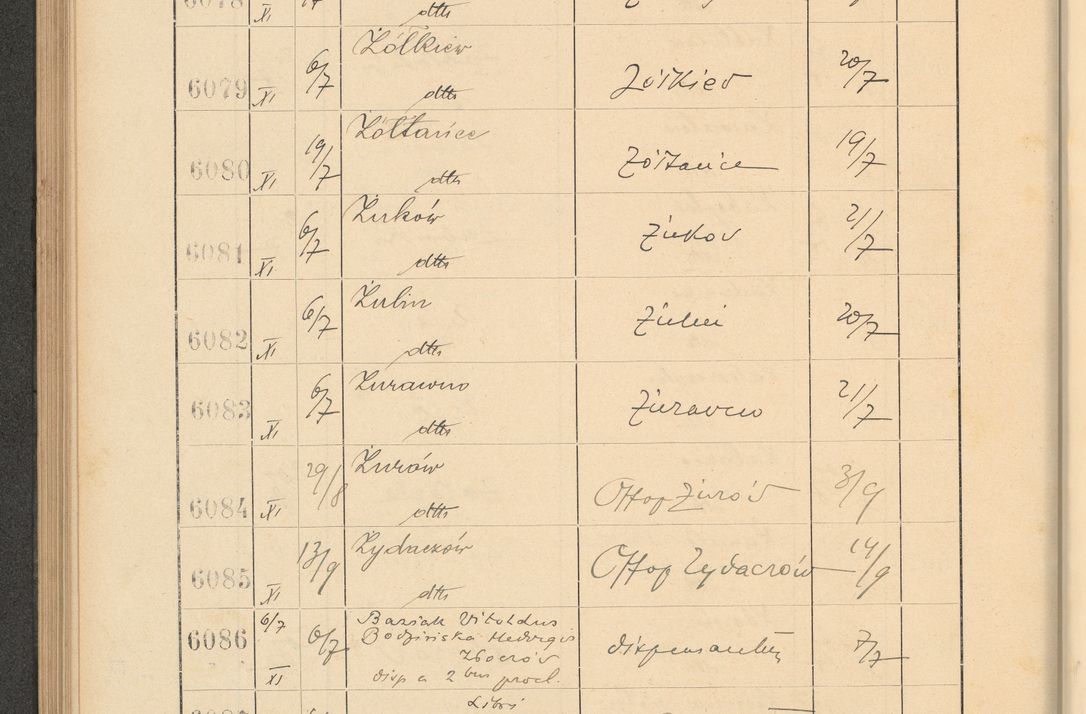 6078 XI dtto
Żółkiew
6079 XI 6/7 dtto Żółkiew 20/7
Żółtańce
6080 XI 19/7 dtto Żółtańce 19/7
Żurków
6081 XI 6/7 dtto Żurkow 21/7
Żulin
6082 XI 6/7 dtto Żulin 20/7
Żurawno
6083 XI 6/7 dtto Żurawno 21/7
Żurów
6084 XI 29/8 dtto Żurów 3/9
Żydaczów
6085 XI 13/9 dtto Żydaczów 14/9
6/7 Baziak Vitoldus
6086 6/7 Bodzińska Hedvigis 7/7
Zborów
XI disp a 2bus procl.
Libri